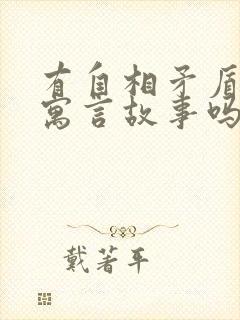 有自相矛盾
寓言故事吗
戴著平